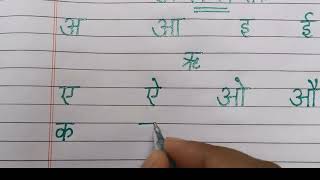 अ आ इ ई
ऋ
ए ऐ ओ औ
क